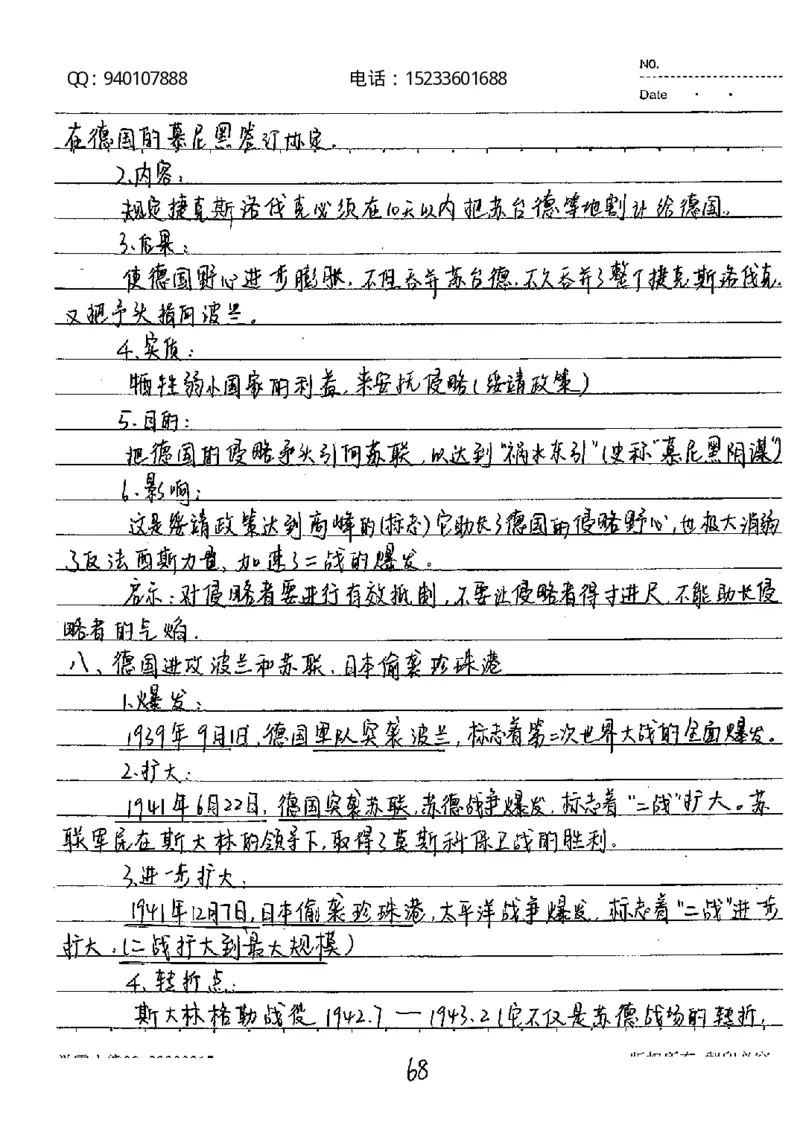 QQ：940107888 电话：15233601688 NO.
Date
在德国的慕尼黑签订协定.
2.内容：
规定捷克斯洛伐克必须在10天以内把苏台德等地割让给德国。
3.后果：
使德国野心进一步膨胀，不但吞并苏台德，不久吞并了整个捷克斯洛伐克.
又把予头指向波兰。
4.实质：
牺牲弱小国家的利益，来安抚侵略(绥靖政策)
5.目的：
把德国的侵略矛头引向苏联，以达到"祸水东引"(史称"慕尼黑阴谋")
6.影响：
这是绥靖政策达到高峰的(标志)它助长了德国的侵略野心,也极大消弱
了反法西斯力量、加速了二战的爆发。
启示：对侵略者要进行有效抵制，不要让侵略者得寸进尺.不能助长侵
略者的气焰.
八、德国进攻波兰和苏联、日本偷袭珍珠港
1.爆发：
1939年9月1日,德国军队突袭波兰,标志着第二次世界大战的全面爆发。
2.扩大：
1941年6月22日，德国突袭苏联,苏德战争爆发.标志着"二战"扩大。苏
联军民在斯大林的领导下,取得了莫斯科保卫战的胜利.
3.进一步扩大：
1941年12月7日,日本偷袭珍珠港,太平洋战争爆发.标志着"二战"进一步
扩大.(二战扩大到最大规模)
4.转折点：
斯大林格勒战役 1942.7 — 1943.2 (它不仅是苏德战场的转折,
68